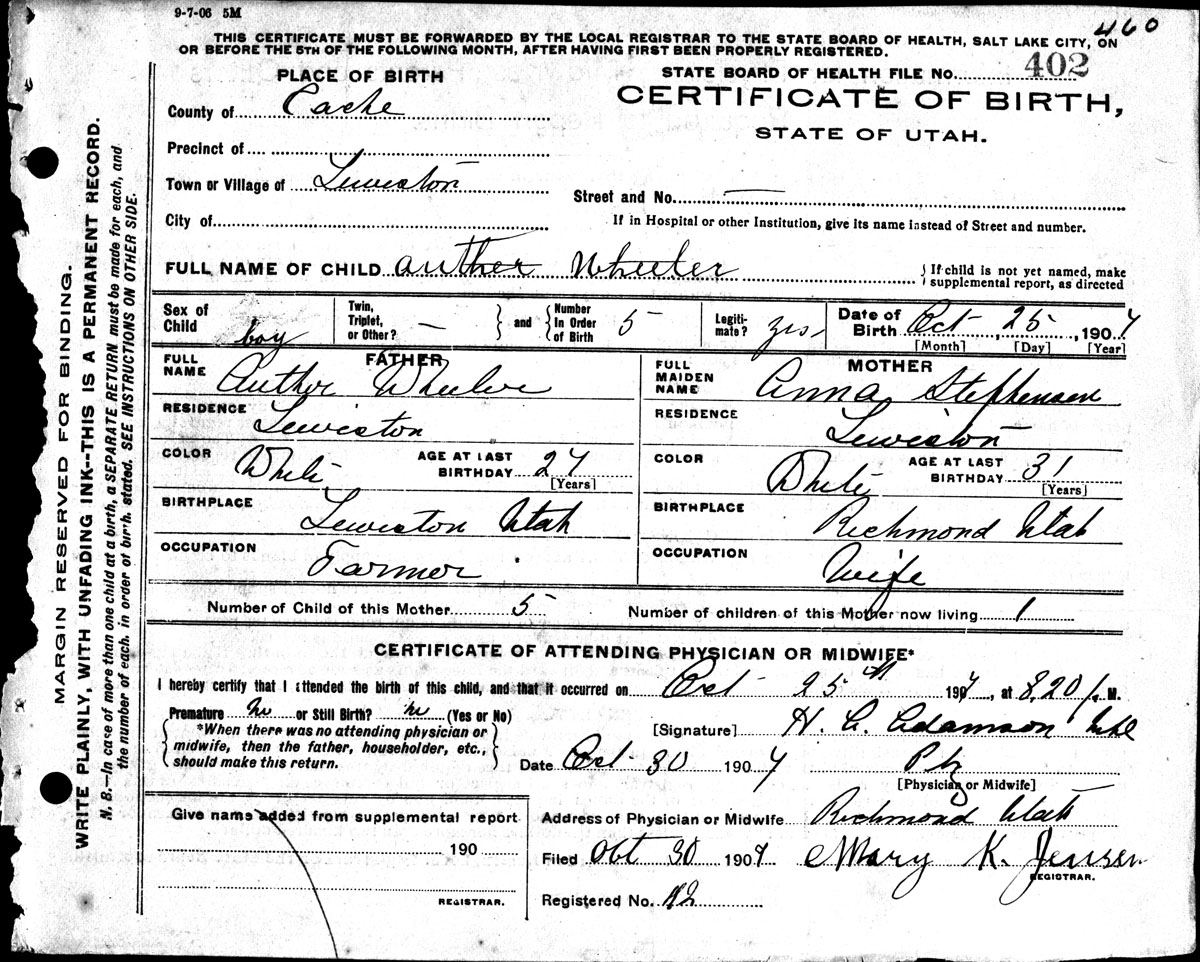 9-7-06 5M
460
THIS CERTIFICATE MUST BE FORWARDED BY THE LOCAL REGISTRAR TO THE STATE BOARD OF HEALTH, SALT LAKE CITY, ON
OR BEFORE THE 5TH OF THE FOLLOWING MONTH, AFTER HAVING FIRST BEEN PROPERLY REGISTERED.
PLACE OF BIRTH
STATE BOARD OF HEALTH FILE NO. 402
County of Cache
CERTIFICATE OF BIRTH,
STATE OF UTAH.
Precinct of
Town or Village of Lewiston
Street and No. —
City of
If in Hospital or other Institution, give its name instead of Street and number.
FULL NAME OF CHILD Auther Wheeler
If child is not yet named, make
supplemental report, as directed
Sex of Child boy
Twin, Triplet, or Other? —
and
Number In Order of Birth 5
Legiti-mate? yes
Date of Birth Oct 25, 1907
[Month] [Day] [Year]
FATHER
FULL NAME Author Wheeler
MOTHER
FULL MAIDEN NAME Anna Stephenson
RESIDENCE Lewiston
RESIDENCE Lewiston
COLOR White AGE AT LAST BIRTHDAY 27 [Years]
COLOR White AGE AT LAST BIRTHDAY 31 [Years]
BIRTHPLACE Lewiston Utah
BIRTHPLACE Richmond Utah
OCCUPATION Farmer
OCCUPATION Wife
Number of Child of this Mother 5 Number of children of this Mother now living 1
CERTIFICATE OF ATTENDING PHYSICIAN OR MIDWIFE*
I hereby certify that I attended the birth of this child, and that it occurred on Oct 25th 1907, at 8.20 M.
Premature no or Still Birth? no (Yes or No)
*When there was no attending physician or
midwife, then the father, householder, etc.,
should make this return.
[Signature] H. C. Adamson
Date Oct 30 1907 Phy
[Physician or Midwife]
Give name added from supplemental report
190
REGISTRAR.
Address of Physician or Midwife Richmond Utah
Filed Oct 30 1907 Mary K. Jensen
REGISTRAR.
Registered No. 12
MARGIN RESERVED FOR BINDING.
WRITE PLAINLY, WITH UNFADING INK--THIS IS A PERMANENT RECORD.
N. B.—In case of more than one child at a birth, a SEPARATE RETURN must be made for each, and
the number of each, in order of birth, stated. SEE INSTRUCTIONS ON OTHER SIDE.